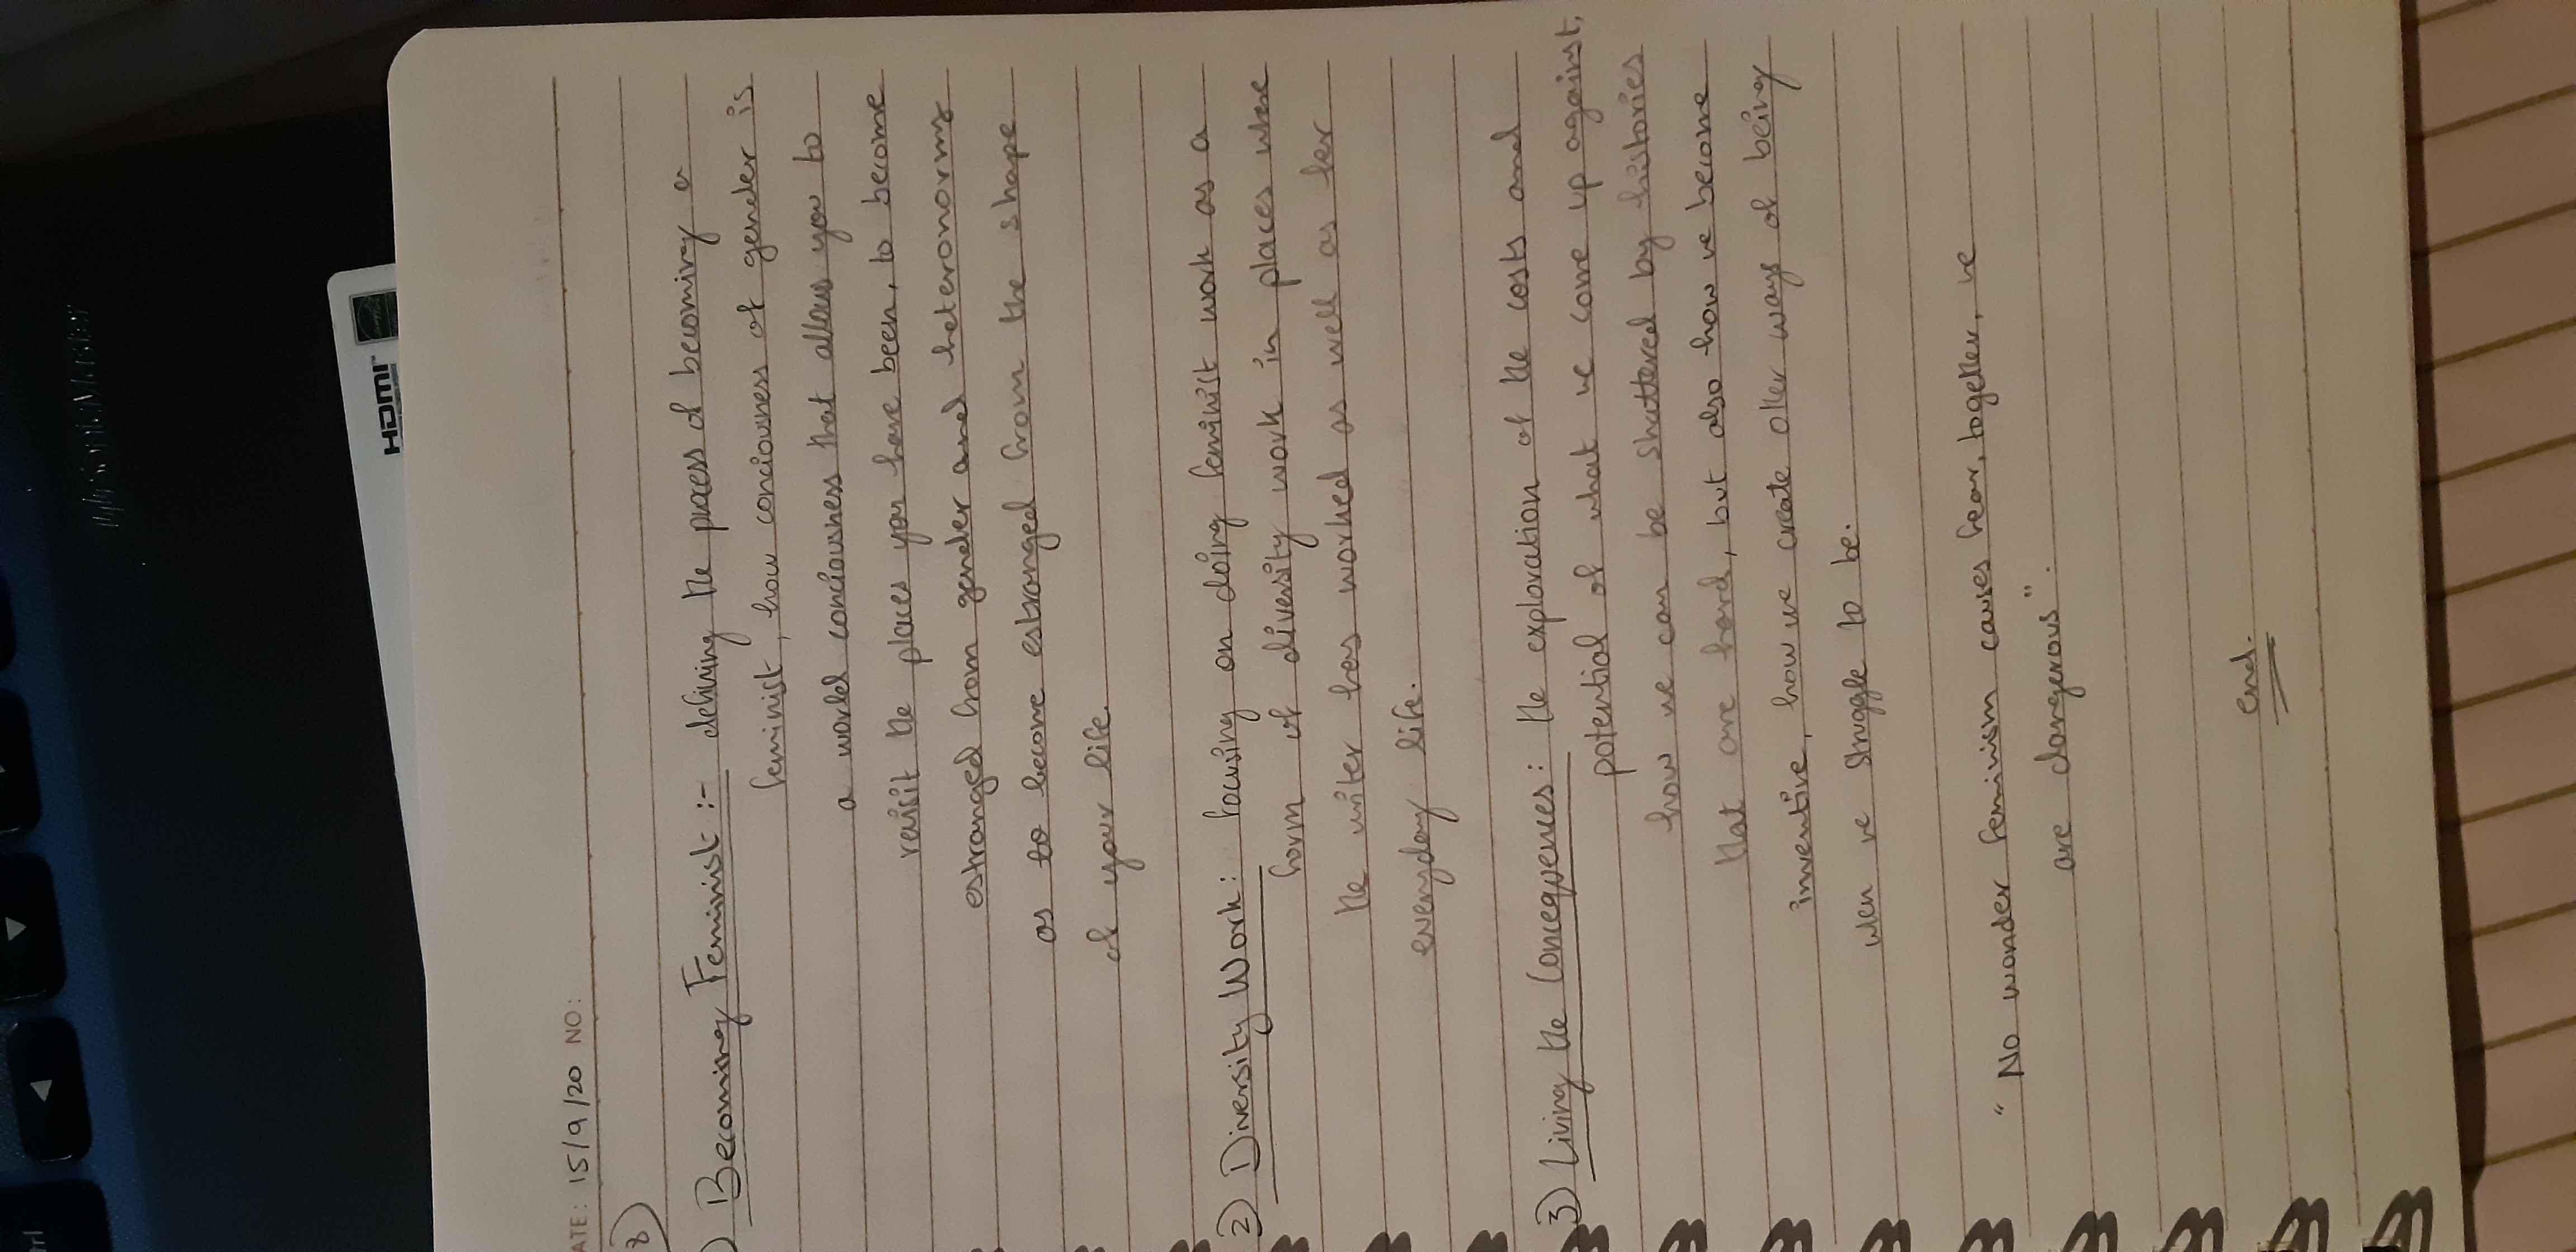 trl
SonicMaster
HDMI
ATE: 15/9/20 NO:
8
) Becoming Feminist :- defining the process of becoming a
feminist, how conciousness of gender is
a world conciousness that allows you to
revisit the places you have been, to become
estranged from gender and heteronorms
as to become estranged from the shape
of your life.
2) Diversity Work: focusing on doing feminist work as a
form of diversity work in places where
the writer has worked as well as her
everyday life.
3) Living the Consequences: the exploration of the costs and
potential of what we come up against,
how we can be shattered by histories
that are hard, but also how we become
inventive, how we create other ways of being
when we struggle to be.
"No wonder feminism causes fear, together, we
are dangerous".
end.